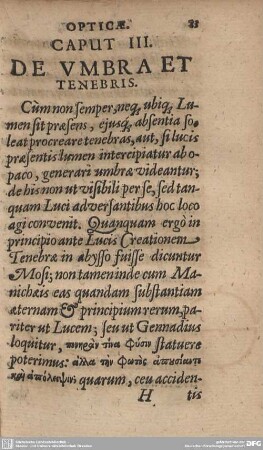 OPTICÆ.
CAPUT III.
DE VMBRA ET
TENEBRIS.
Cùm non semper, neq; ubiq; Lu-
men sit præsens, ejusq; absentia so-
leat procreare tenebras, aut, si lucis
præsentis lumen intercipiatur ab o-
paco, generari umbræ videantur;
de his non ut visibili per se, sed tan-
quam Luci adversantibus hoc loco
agi convenit. Quanquam ergò in
principio ante Lucis Creationem
Tenebræ in abysso fuisse dicuntur
Mosi; non tamen inde cum Ma-
nichæis eas quandam substantiam
æternam & principium rerum, pa-
riter ut Lucem; seu ut Gennadius
loquitur, τινα φύσιν statuere
poterimus: ἀλλα την φωτὸς ἀπουσίαν
και quarum, ceu acciden-
H tis